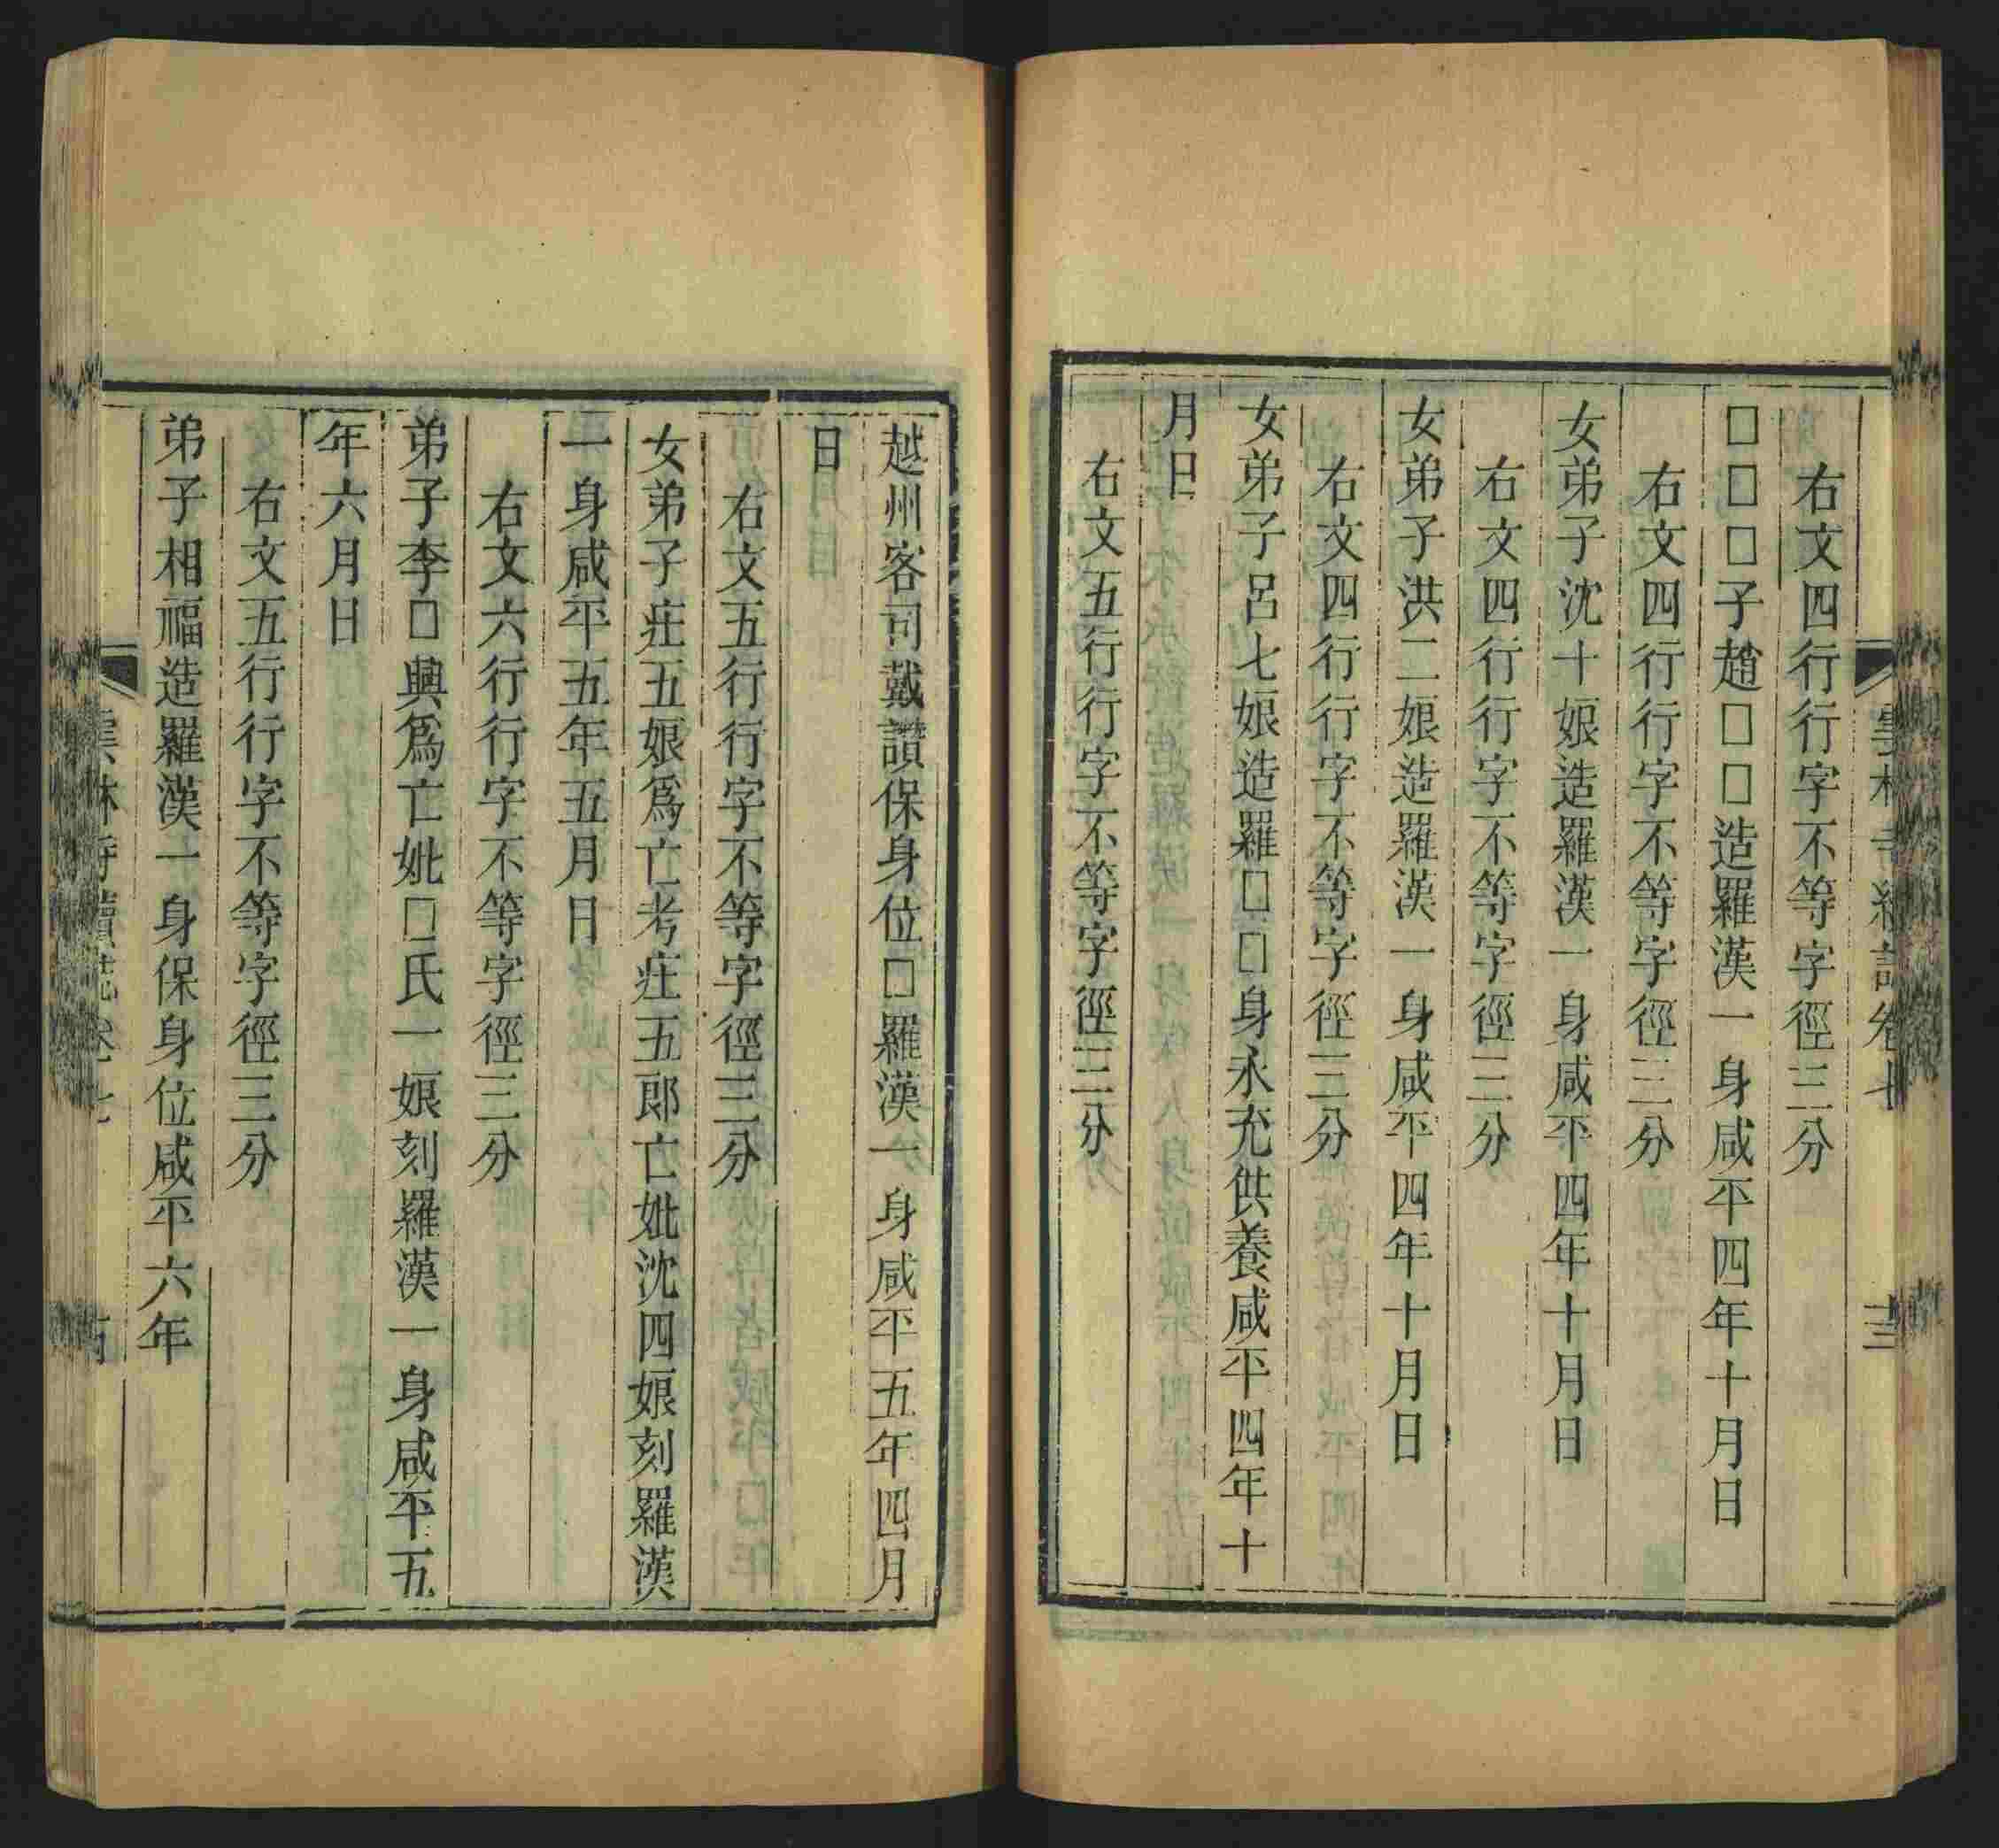 雲林寺續誌卷七
十三
右文四行行字不等字徑三分
□□□子趙□□造羅漢一身咸平四年十月日
右文四行行字不等字徑三分
女弟子沈十娘造羅漢一身咸平四年十月日
右文四行行字不等字徑三分
女弟子洪二娘造羅漢一身咸平四年十月日
右文四行行字不等字徑三分
女弟子呂七娘造羅□□身永充供養咸平四年十
月日
右文五行行字不等字徑三分
越州客司戴讚保身位□羅漢一身咸平五年四月
日
右文五行行字不等字徑三分
女弟子疰五娘爲亡考疰五郎亡妣沈四娘刻羅漢
一身咸平五年五月日
右文六行行字不等字徑三分
弟子李□興爲亡妣□氏一娘刻羅漢一身咸平五
年六月日
右文五行行字不等字徑三分
弟子相福造羅漢一身保身位咸平六年
雲林寺續誌卷七